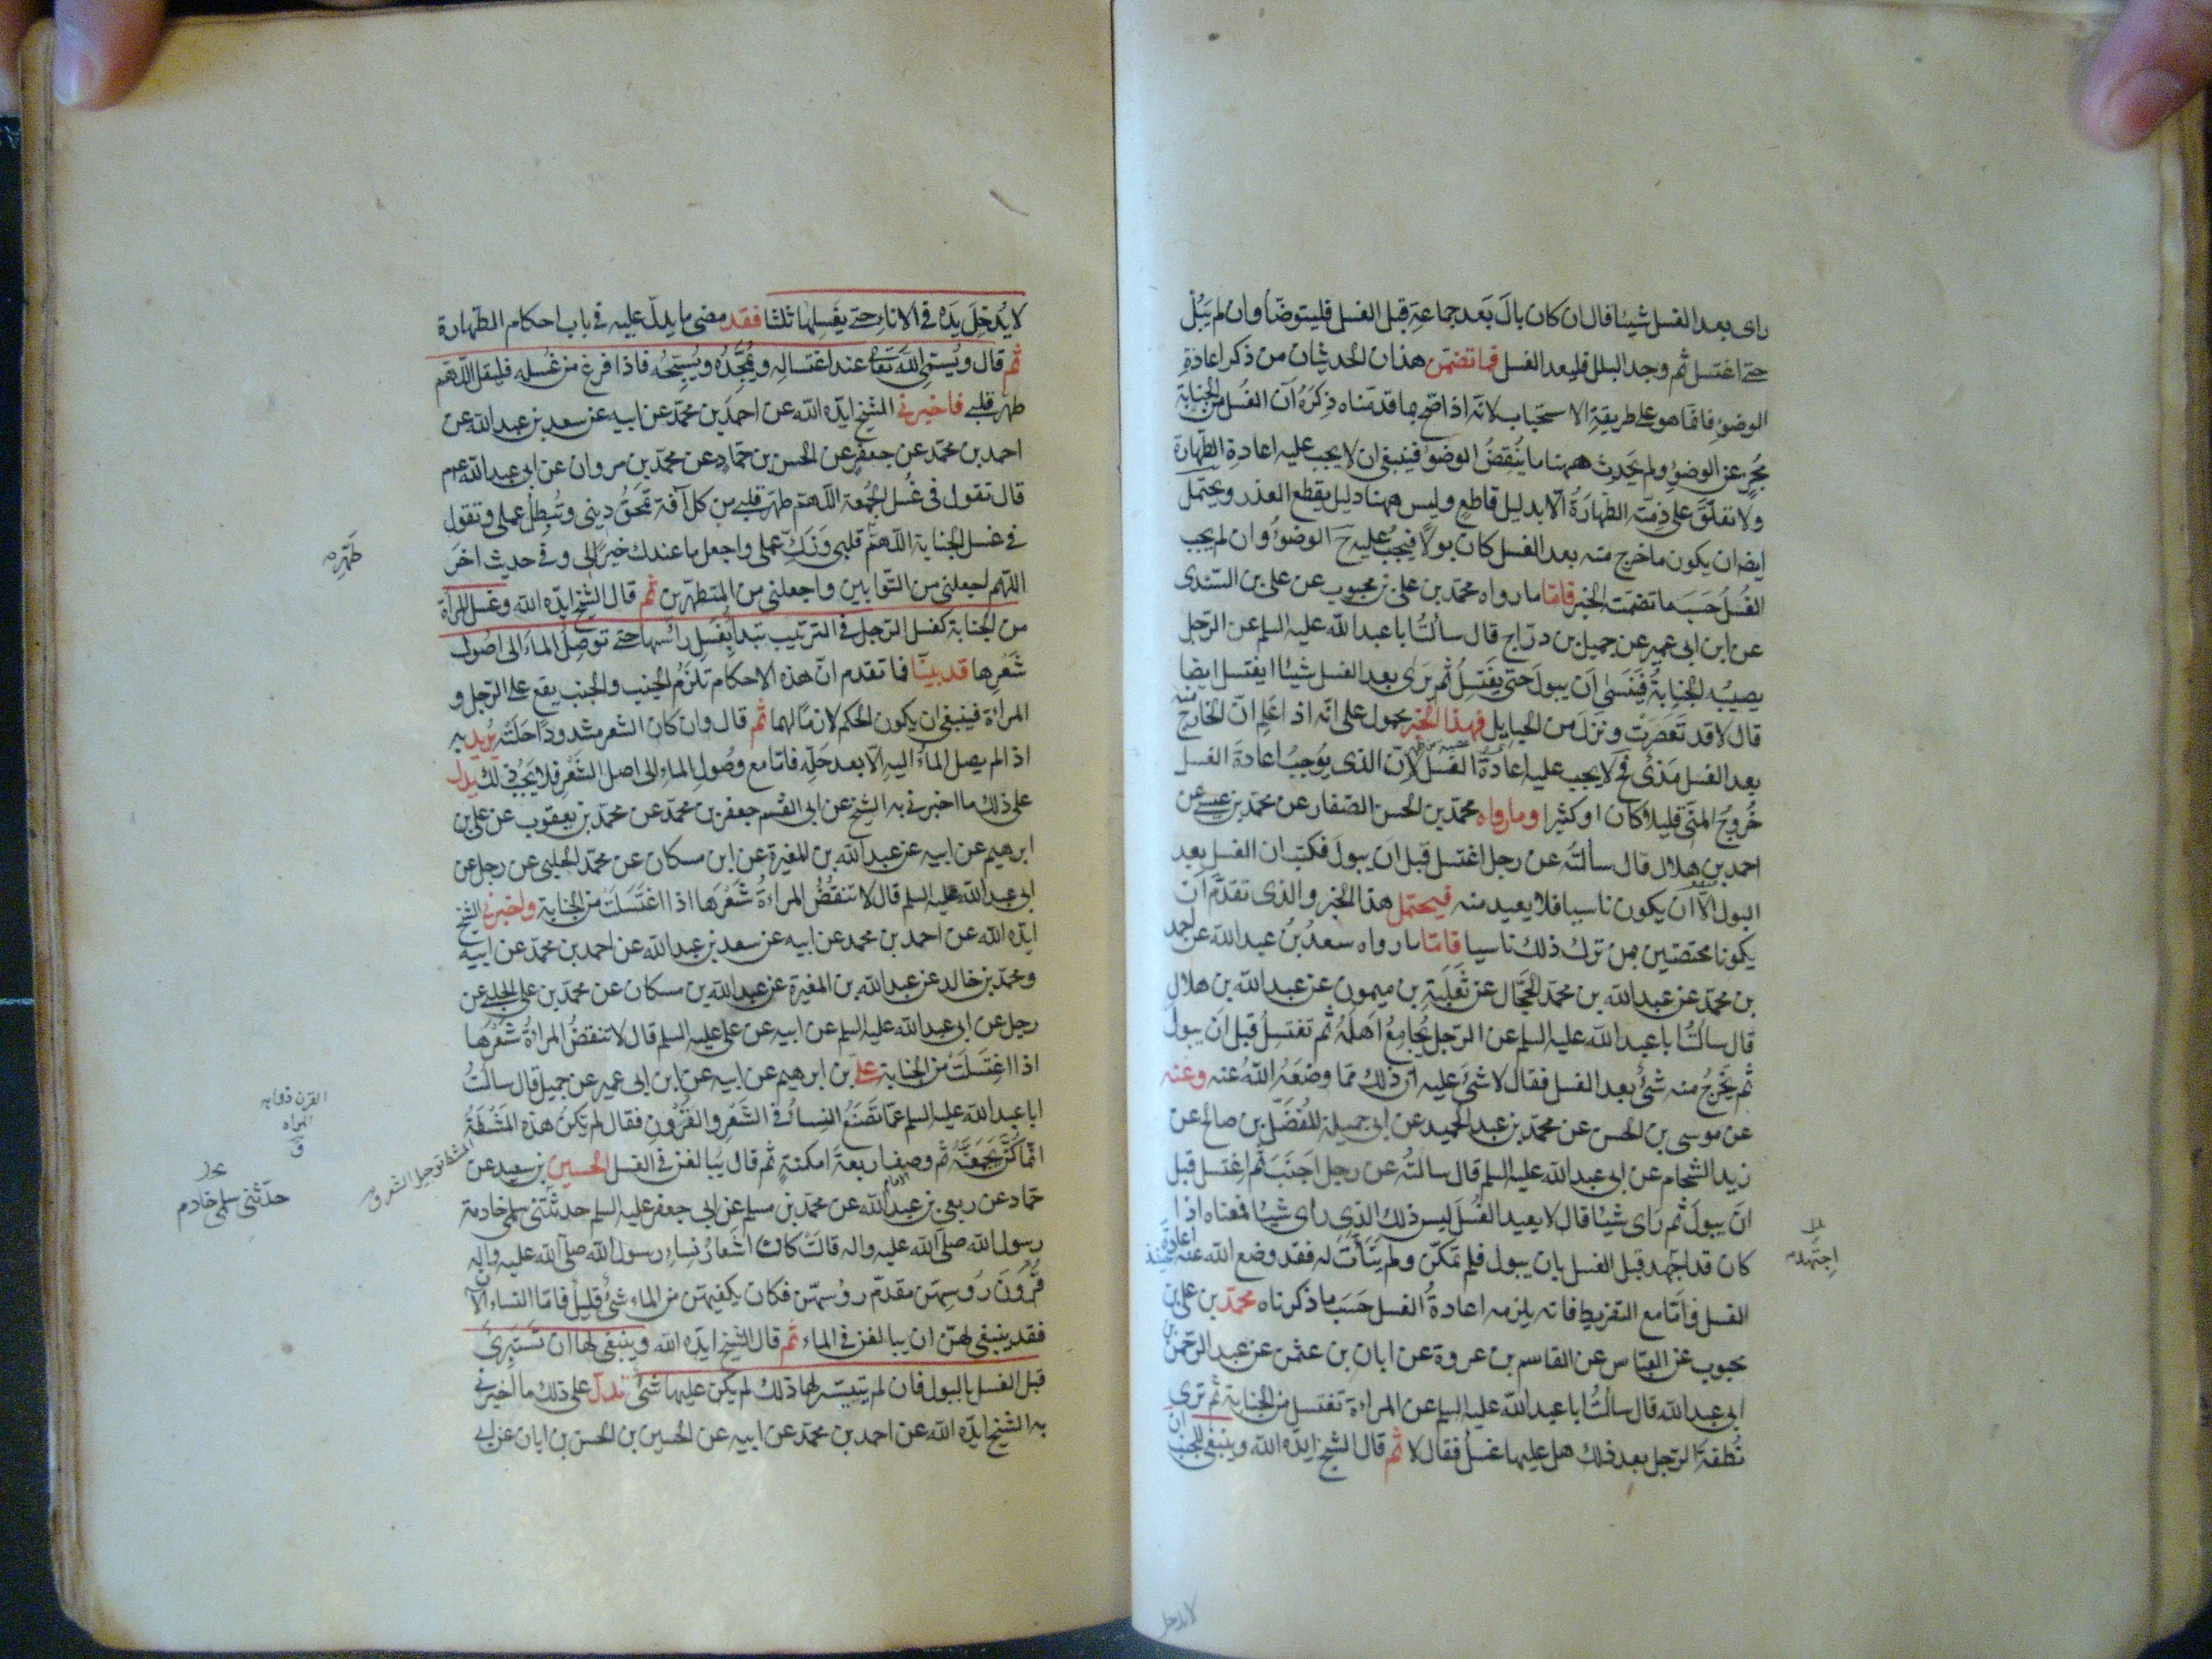 راى بعد الغسل شيئا قال ان كان بالَ بَعد جماعِهِ قبل الغسل فليتوضّأ وان لم يَبُلْ
حتى اغتسل ثم وجد البلل فليعد الغسل فما تضمّن هذان الحديثان من ذكر اعادة
الوضوءِ فانما هو على طريقةِ الاستحباب لانّه اذا صحّ بما قدمناه ذِكرَهُ انّ الغُسل من الجنابة
مُجزٍ عن الوضوءِ ولم يَحدِث ههنا ما يُنقِضُ الوضوَ فينبغى ان لا يجب عليه اعادة الطهارة
ولا تعلّقَ على ذِمّته الطهارَةُ الّا بدليل قاطع وليس ههنا دليل يقطع العذر ويحتمل
ايضا ان يكون ما خرج منه بعد الغسل كان بولًا فيجبُ عليه ح الوضوُ وان لم يجب
الغُسلُ حَسَبَ ما تضمّنه الخبر فامّا ما رواه محمّد بن على بن محبوب عن على بن السّندى
عن ابن ابى عمير عن جميل بن درّاج قال سألتُ ابا عبد الله عليه السلم عن الرّجل
يصيبُه الجنابةُ فَيَنسىٰ ان يبولَ حتى يَغتسِلُ ثم يرى بعد الغسل شيئا ايغتسل ايضا
قال لا قد تَعَصّرَت ونزل من الحبايل فهذا الخبر محمول على انّه اذا عَلِم انّ الخارج منه
بعد الغسل مَذىٌ ح لا يجب عليه اعادة الغسل لانّ الذى يُوجِبُ اعادةَ الغسل
خُروجُ المنّى قليلا كان او كثيرا وما رواه محمّد بن الحسن الصّفار عن محمّد بن عيسى عن
احمد بن هلال قال سألتُه عن رجل اغتسل قبل ان يبولَ فكتب ان الغسل بعد
البول الّا ان يكون ناسيا فلا يعيد منه فيحتمل هذا الخبر والذى تقدّم ان
يكونا مختصّين بمن ترك ذلك ناسيا فامّا ما رواه سعدُ بنُ عبد الله عن احمد
بن محمّد عن عبد الله بن محمّد الحجّال عن ثَعلَبة بن ميمون عن عبد الله بن هلال
قال سالتُ ابا عبد الله عليه السلم عن الرّجل يُجامِعُ اهلَهُ ثم تغتسل قبل ان يبول
ثم يَخرجُ منه شىٌ بعد الغسل فقال لا شىَ عليه انّ ذلك ممّا وضعَهُ اللهُ عنه وعنه
عن موسى بن الحسن عن محمّد بن عبد الحميد عن ابى جميلة المُفضّل بن صالح عن
زيد الشحام عن ابى عبد الله عليه السلم قال سالتُه عن رجل اجنَبَ ثم اغتسل قبل
ان يبولَ ثم راى شيئا قال لا يعيد الغُسلَ ليس ذلك الذى راى شيئا فمعناه اذا
كان قد اجتهد قبل الغسل بان يبول فلم يتمكّن ولم يَتَأتَّ له فقد وضع الله عنه حينئذ اعادة
الغسل فامّا مع التفريط فانه يلزمه اعادةُ الغسل حَسَبَ ما ذكرناه محمّد بن على بن
محبوب عن العبّاس عن القاسم بن عروة عن ابان بن عثمن عن عبد الرّحمن بن
ابى عبد الله قال سالتُ ابا عبد الله عليه السلم عن المراءة تغتسل من الجنابة ثم ترى
نُطفةَ الرّجل بعد ذلك هل عليها غسلُ فقال لا ثم قال الشيخ ايّده الله وينبغى للجنب ان
اجتهد
لا يدخل
لا يُدخِلَ يَدَه فى الاناءِ حتى يغسلها ثلثا فقد مضى ما يدلّ عليه فى باب احكام الطّهارة
ثم قال ويُسمّى اللهَ تعالى عند اغتسالِه ويُمَجّدُه ويُسبّحُه فاذا فرغ من غُسلِه فليقل اللّهم
طهر قلبى فاخبرنى الشيخ ايّده الله عن احمد بن محمّد عن ابيه عن سعد بن عبد الله عن
احمد بن محمّد عن جعفر عن الحسن بن حمّاد عن محمّد بن مروان عن ابى عبد الله عم
قال تقول فى غُسل الجُمعة اللّهمّ طهّر قلبى من كل آفة تمحَقُ دينى وتُبطِلُ عملى وتقول
فى غسل الجنابة اللّهمّ قلبى وَزَكِّ عملى واجعل ما عندك خيرًا لى وفى حديث اخر
اللّهم اجعلنى من التّوابين واجعلنى من المتطهّرين ثم قال الشيخ ايّده الله وغسل المراة
من الجنابة كغسل الرّجل فى الترتيب تبدأ بغسل رأسها حتى توصل الماء الى اصول
شَعرِها قد بيّنّا فما تقدم انّ هذه الاحكام تلزمُ الجنب والجنب يقع على الرّجل و
المراة فينبغى ان يكون الحكم لازمًا لهما ثم قال وان كان الشعر مشدودًا حلّته يُريد به
اذا لم يصل الماءُ اليه الّا بعد حلّه فامّا مع وصُول الماء الى اصل الشعر فلا يجب ذلك يدلّ
على ذلك ما اخبرنى به الشيخ عن ابى القسم جعفر بن محمّد عن محمّد بن يعقوب عن على بن
ابرهيم عن ابيه عن عبد الله بن المغيرة عن ابن مسكان عن محمّد الحلبى عن رجل عن
ابى عبد الله عليه السلم قال لا تنقُضُ المراءةُ شَعرَها اذا اغتَسَلَت من الجنابة واخبرنى الشيخ
ايّده الله عن احمد بن محمد عن ابيه عن سعد بن عبد الله عن احمد بن محمّد عن ابيه
ومحمّد بن خالد عن عبد الله بن المغيرة عن عبد الله بن مسكان عن محمّد بن على الحلبى عن
رجل عن ابى عبد الله عليه السلم عن ابيه عن على عليه السلم قال لا تنقضُ المراةُ شعرَها
اذا اغتسَلَت من الجنابة على بن ابرهيم عن ابيه عن ابن ابى عمير عن جميل قال سالتُ
ابا عبد الله عليه السلم عمّا تَصنَعُ النساءُ فى الشَعرِ والقُرونِ فقال لم تكن هذه المَشطَةُ
انّما كنّ يَجمَعنَه ثم وصف اربعةَ امكنةٍ ثم قال يُبالغن فى الغسل الحسين بن سعيد عن
حمّاد عن ربعى بن عبد الله عن محمّد بن مسلم عن ابى جعفر عليه السلم حدثَتنى سلمى خادمة
رسول الله صلى الله عليه واله قالت كان اشعارُ نساءِ رسول الله صلى الله عليه واله
قُرونَ رؤسهنّ مقدّم رؤسهنّ فكان يكفيهنّ من الماء شىٌ قليلٌ فامّا النساء الآن
فقد ينبغى لهنّ ان يبالغن فى الماء ثم قال الشيخ ايّده الله وينبغى لها ان تستبرئَ
قبل الغسل بالبول فان لم يتيسّر لها ذلك لم يكن عليها شىٌ يدلّ على ذلك ما اخبرنى
به الشيخ ايّده الله عن احمد بن محمّد عن ابيه عن الحسين بن الحسن بن ابان عن
طَهّر
القرن ذؤابه
المراه
ق
المشط ترجيل الشعر ق
حدّثنى سلمى خادم